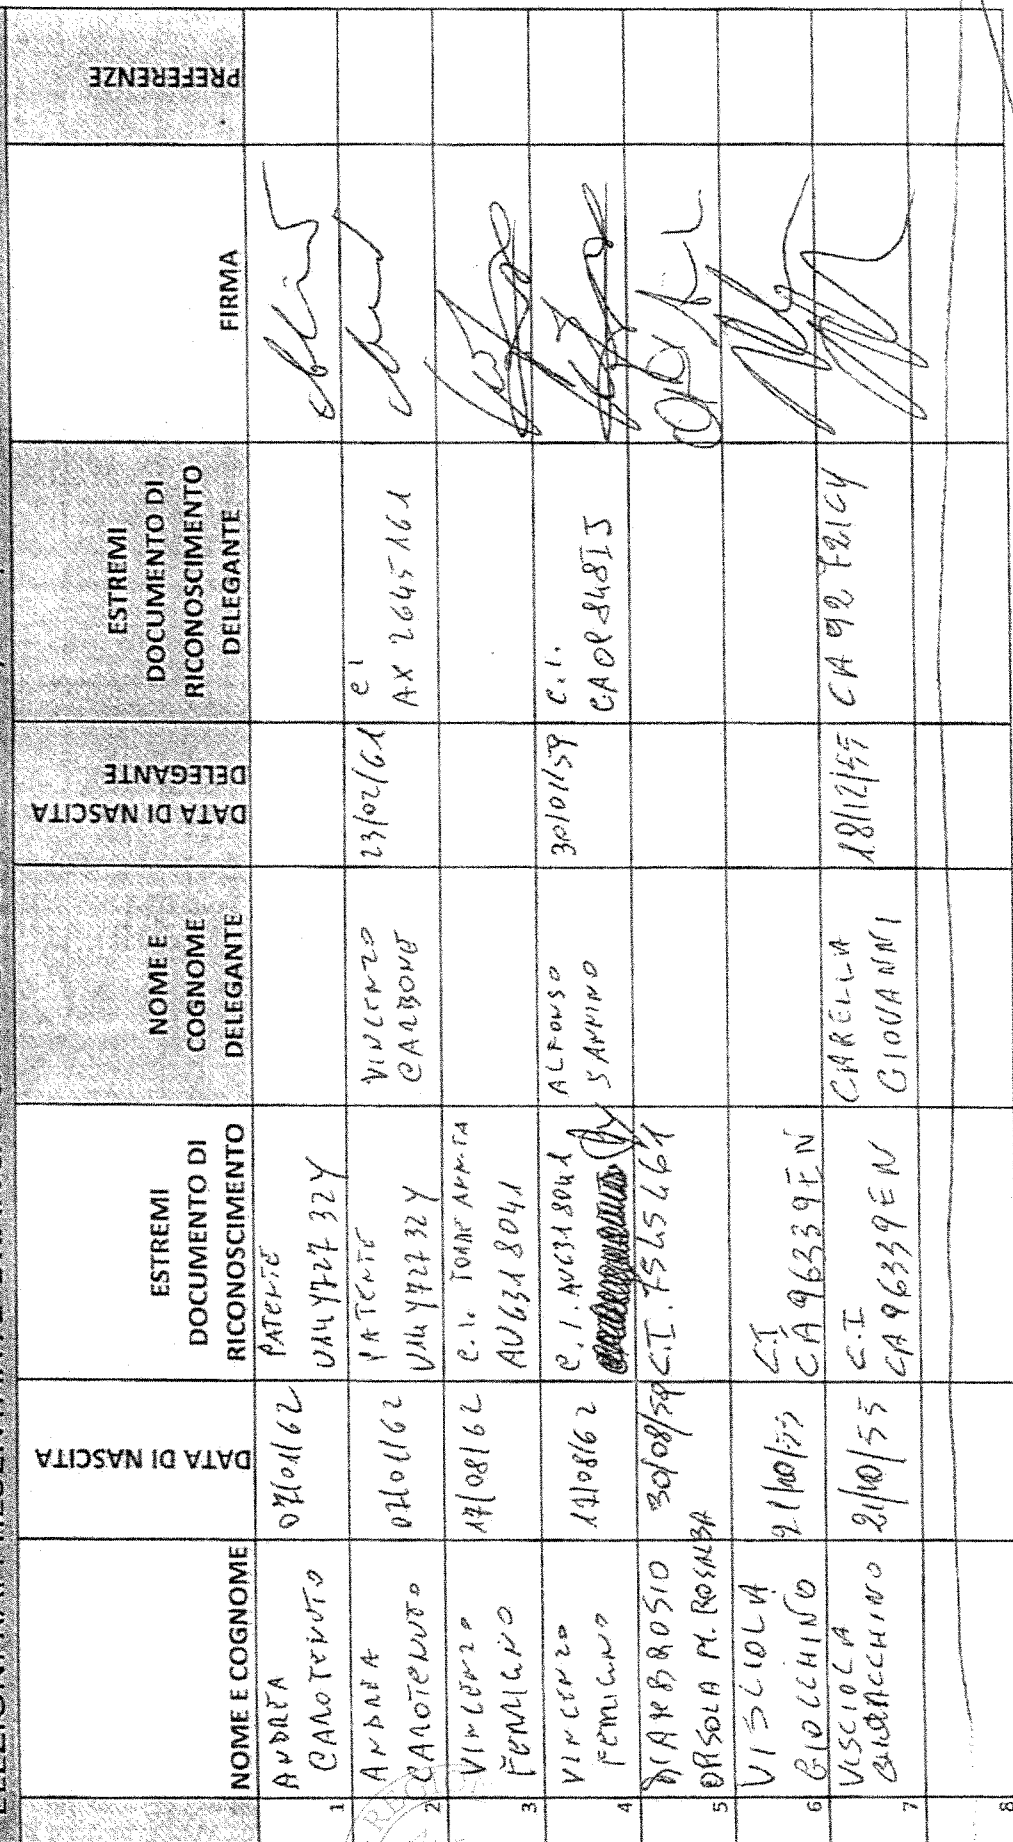 NOME E COGNOME
DATA DI NASCITA
ESTREMI
DOCUMENTO DI
RICONOSCIMENTO
NOME E
COGNOME
DELEGANTE
DATA DI NASCITA
DELEGANTE
ESTREMI
DOCUMENTO DI
RICONOSCIMENTO
DELEGANTE
FIRMA
PREFERENZE
1
ANDREA
CAROTENUTO
07/01/62
PATENTE
U14Y72732Y
2
ANDREA
CAROTENUTO
07/01/62
PATENTE
U14Y72732Y
VINCENZO
CARBONE
23/02/61
C.I
AX 2645161
3
VINCENZO
FERRIGNO
17/08/62
C.I. TORRE ANN.TA
AU6318041
4
VINCENZO
FERRIGNO
17/08/62
C.I. AU6318041
ALFONSO
SANNINO
30/01/59
C.I.
5
D'AMBROSIO
ORSOLA M. ROSALBA
30/08/59
C.I. 7545461
6
VISCIOLA
GIOCCHINO
21/10/55
C.I
CA96339EN
7
VISCIOLA
21/10/55
C.I
CA96339EN
CARELLA
GIOVANNI
18/12/55
CA 92721CY
8